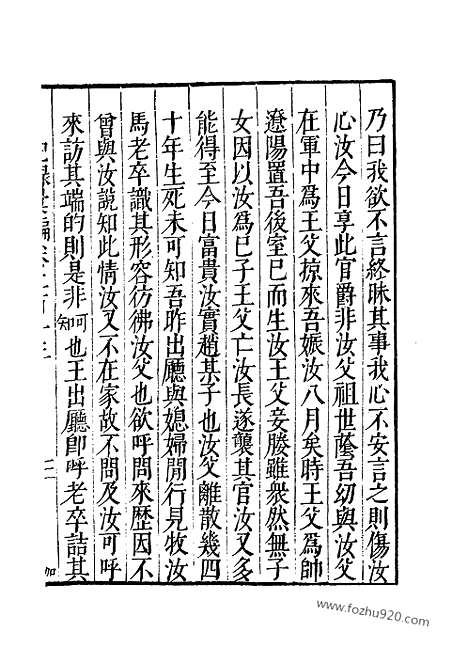 乃曰我欲不言終昧其事我心不安言之則傷汝
心汝今日享此官爵非汝父祖世蔭吾幼與汝父
在軍中爲王父掠來吾娠汝八月矣時王父爲帥
遼陽置吾後室已而生汝王父妾媵雖衆然無子
女因以汝爲已子王父亡汝長遂襲其官汝又多
能得至今日富貴汝實趙某子也汝父離散幾四
十年生死未可知吾昨出廳與媳婦閒行見牧汝
馬老卒識其形容彷彿汝父也欲呼問來歷因不
曾與汝說知此情汝又不在家故不問及汝可呼
來訪其端的則是非可知也王出廳卽呼老卒詰其
www.fozhu920.com